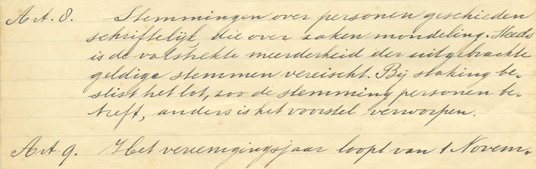 Art. 8. Stemmingen over personen geschieden
schriftelijk, die over zaken mondeling. Steeds
is de volstrekte meerderheid der uitgebrachte
geldige stemmen vereischt. Bij staking be-
slist het lot, zoo de stemming personen be-
treft, anders is het voorstel verworpen.
Art. 9. Het vereenigingsjaar loopt van 1 Novem-